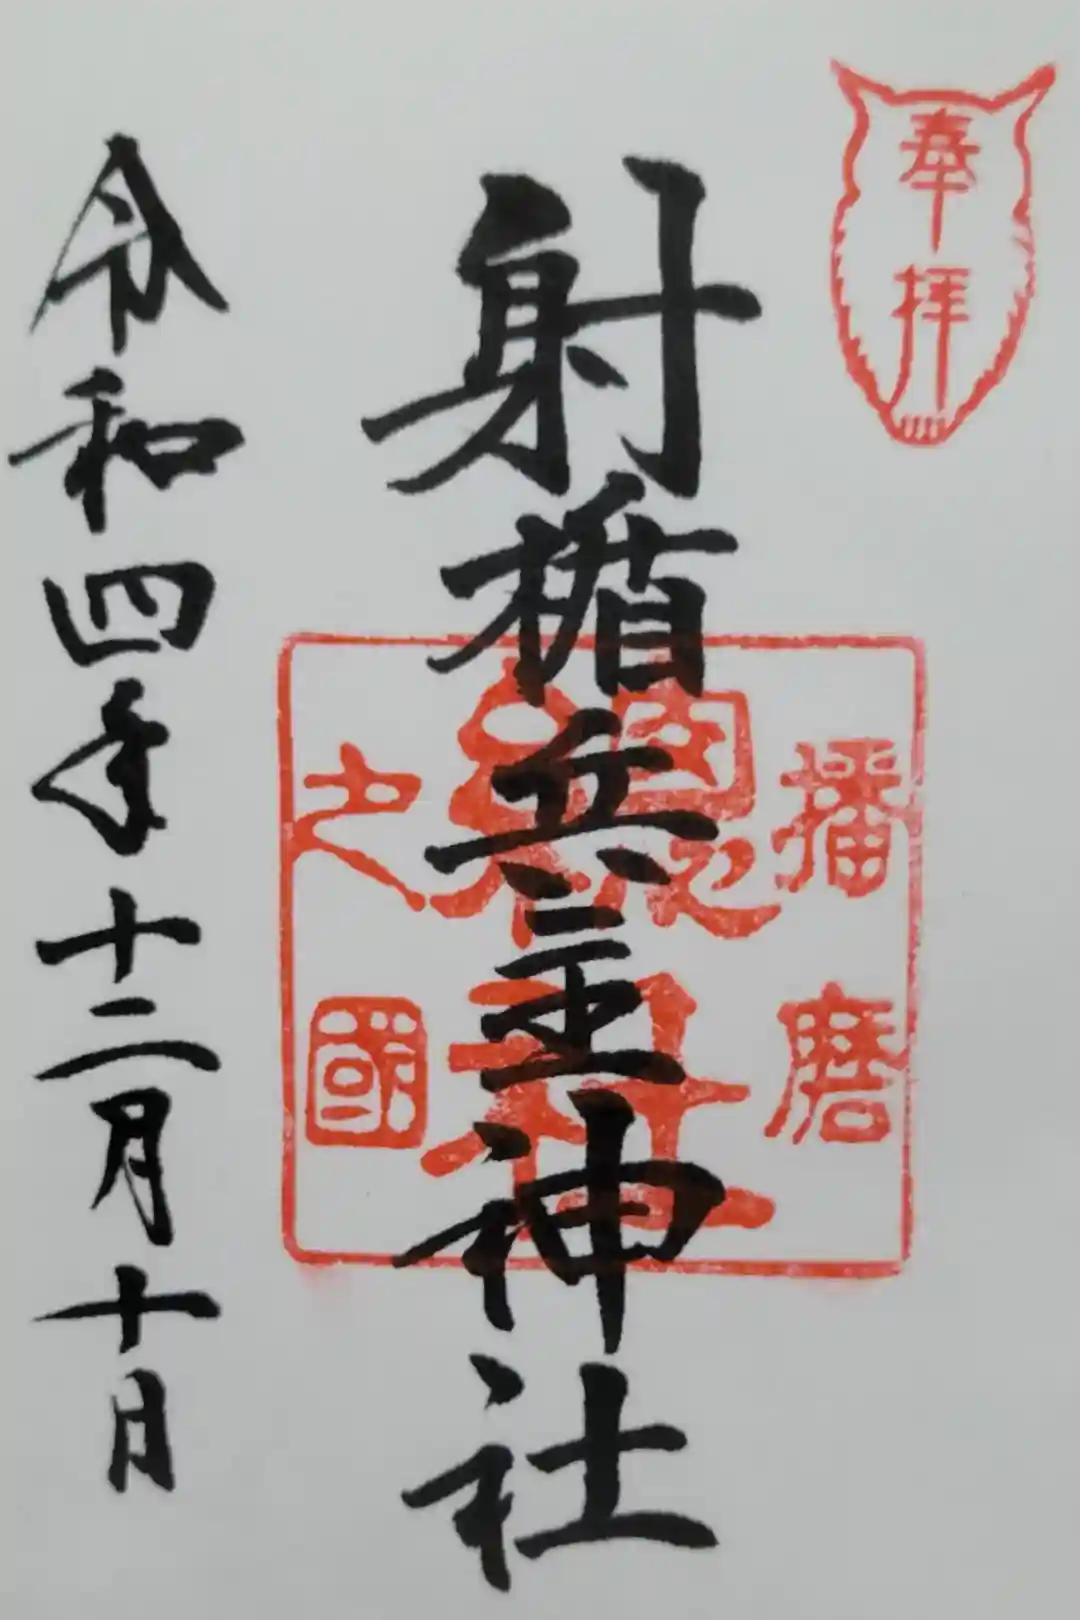 奉拝
射楯兵主神社
播磨
之國
總社
令和四年十二月十日